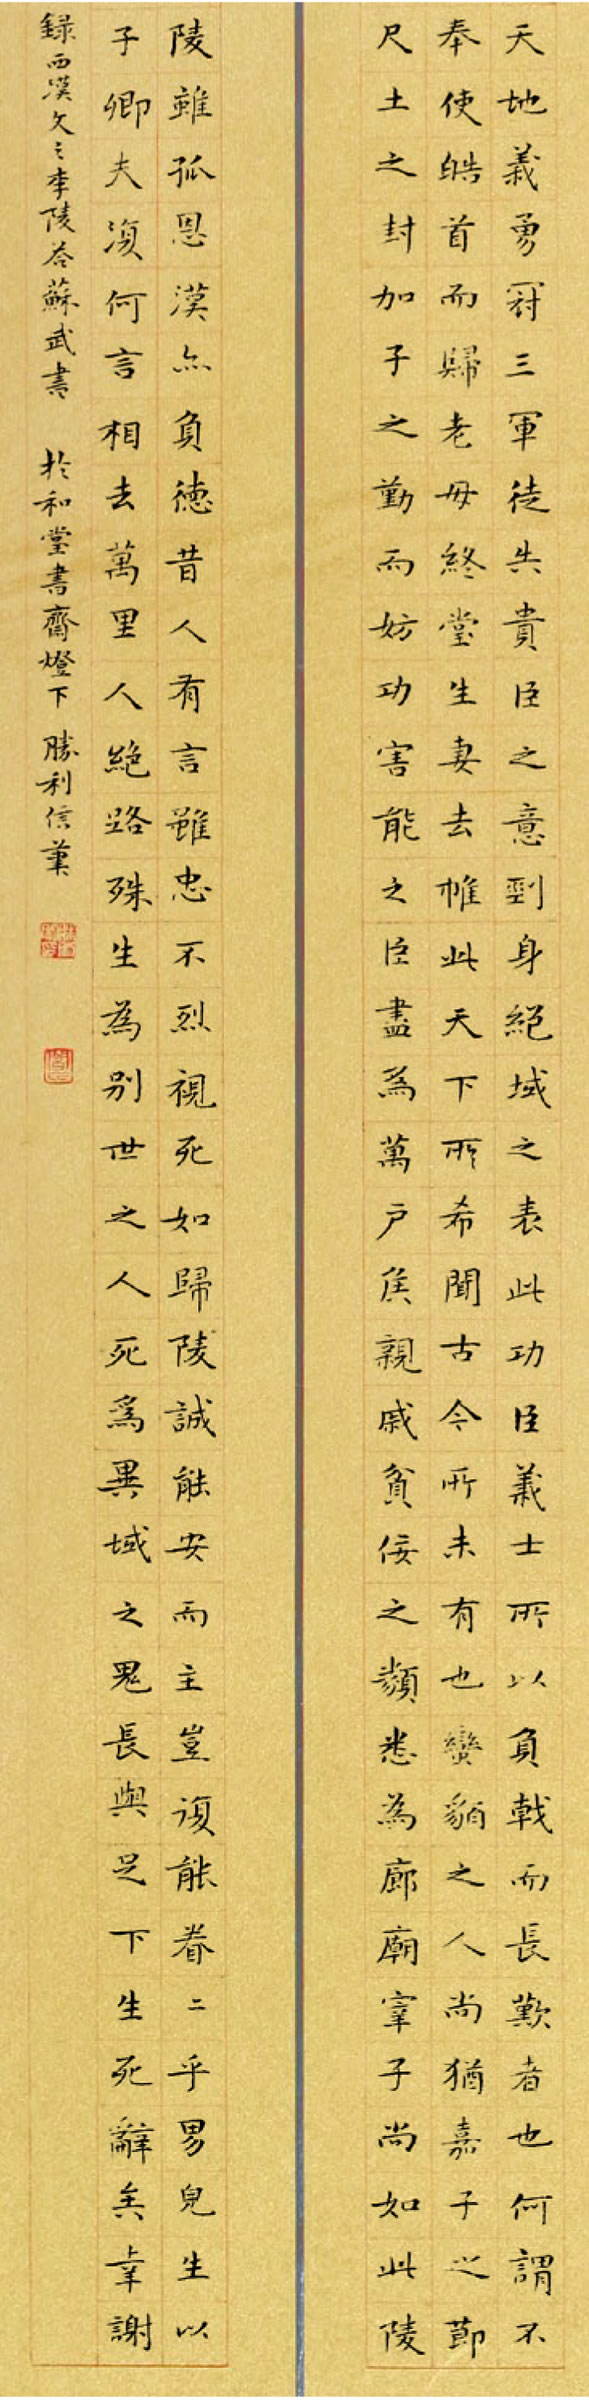 天地義勇冠三軍徒失貴臣之意剄身絕域之表此功臣義士所以負戟而長歎者也何謂不
奉使皓首而歸老母終堂生妻去帷此天下所希聞古今所未有也蠻貊之人尚猶嘉子之節
尺土之封加子之勤而妨功害能之臣盡為萬戶侯親戚貪佞之類悉為廊廟宰子尚如此陵
陵雖孤恩漢亦負德昔人有言雖忠不烈視死如歸陵誠能安而主豈復能眷二乎男兒生以
子卿夫復何言相去萬里人絕路殊生為別世之人死為異域之鬼長與足下生死辭矣幸謝
錄西漢文之李陵答蘇武書 於和堂書齋燈下 勝利信筆